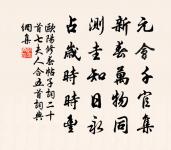 元會千官集
新春萬物同
測圭知日永
占歲時時豐
歐陽修春帖子詞二十
首七夫人合五首詞典
網集